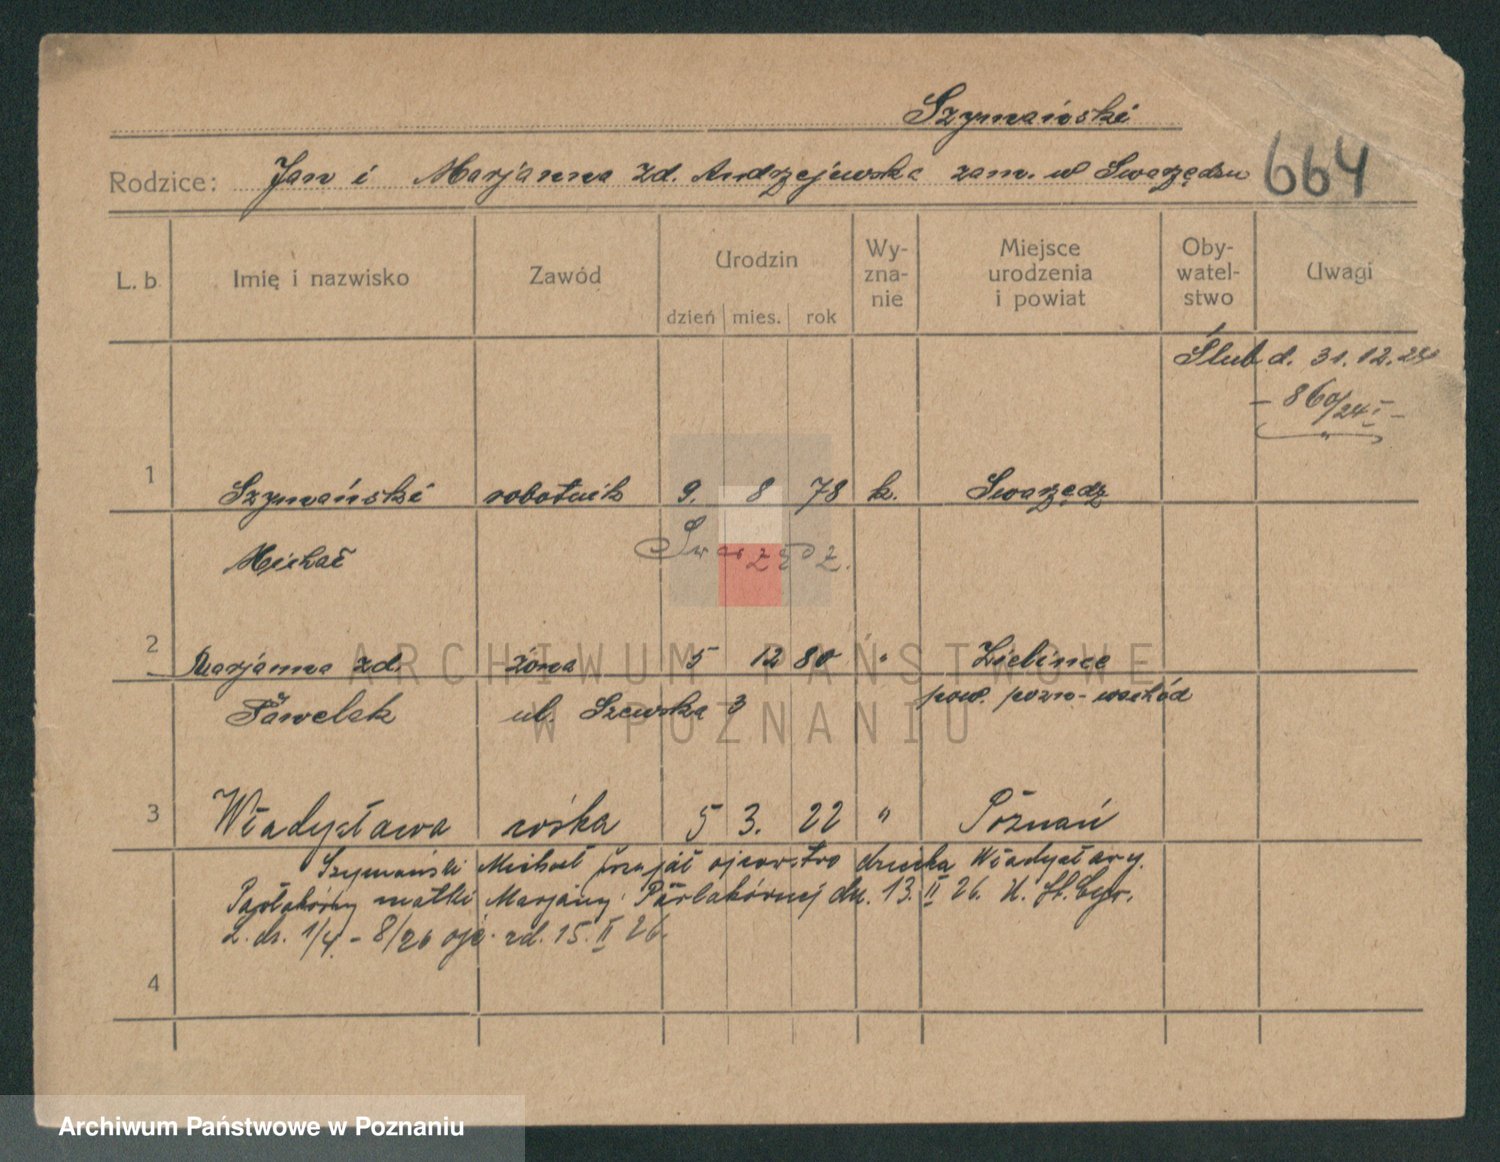 Szymański
Rodzice: Jan i Marjanna zd. Andrzejewska zam. w Swarzędzu 664
L. b Imię i nazwisko Zawód Urodzin Wy-zna-nie Miejsce urodzenia i powiat Oby-watel-stwo Uwagi
dzień mies. rok
Ślub d. 31.12.24
- 860/24 I -
1 Szymański robotnik 9. 8 78 k. Swarzędz
Michał Swarzędz.
2 Marjanna zd. żona 5 12 80 " Zieliniec
Pawelak ul. Szewska 3 pow. pozn-wschód
3 Władysława córka 5 3. 22 " Poznań
Szymański Michał przyjął ojcostwo dziecka Władysławy
matki Marjanny dn. 13. II 26. U. St. Cyw.
L. dz. 1/4 - 8/26 zd. 15. II 26.
4
ARCHIWUM PAŃSTWOWE
W POZNANIU
Archiwum Państwowe w Poznaniu